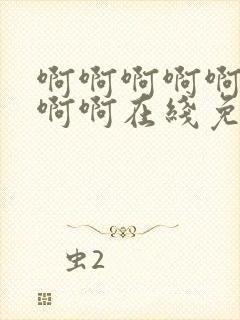 啊啊啊啊啊
啊啊在线免
虫2